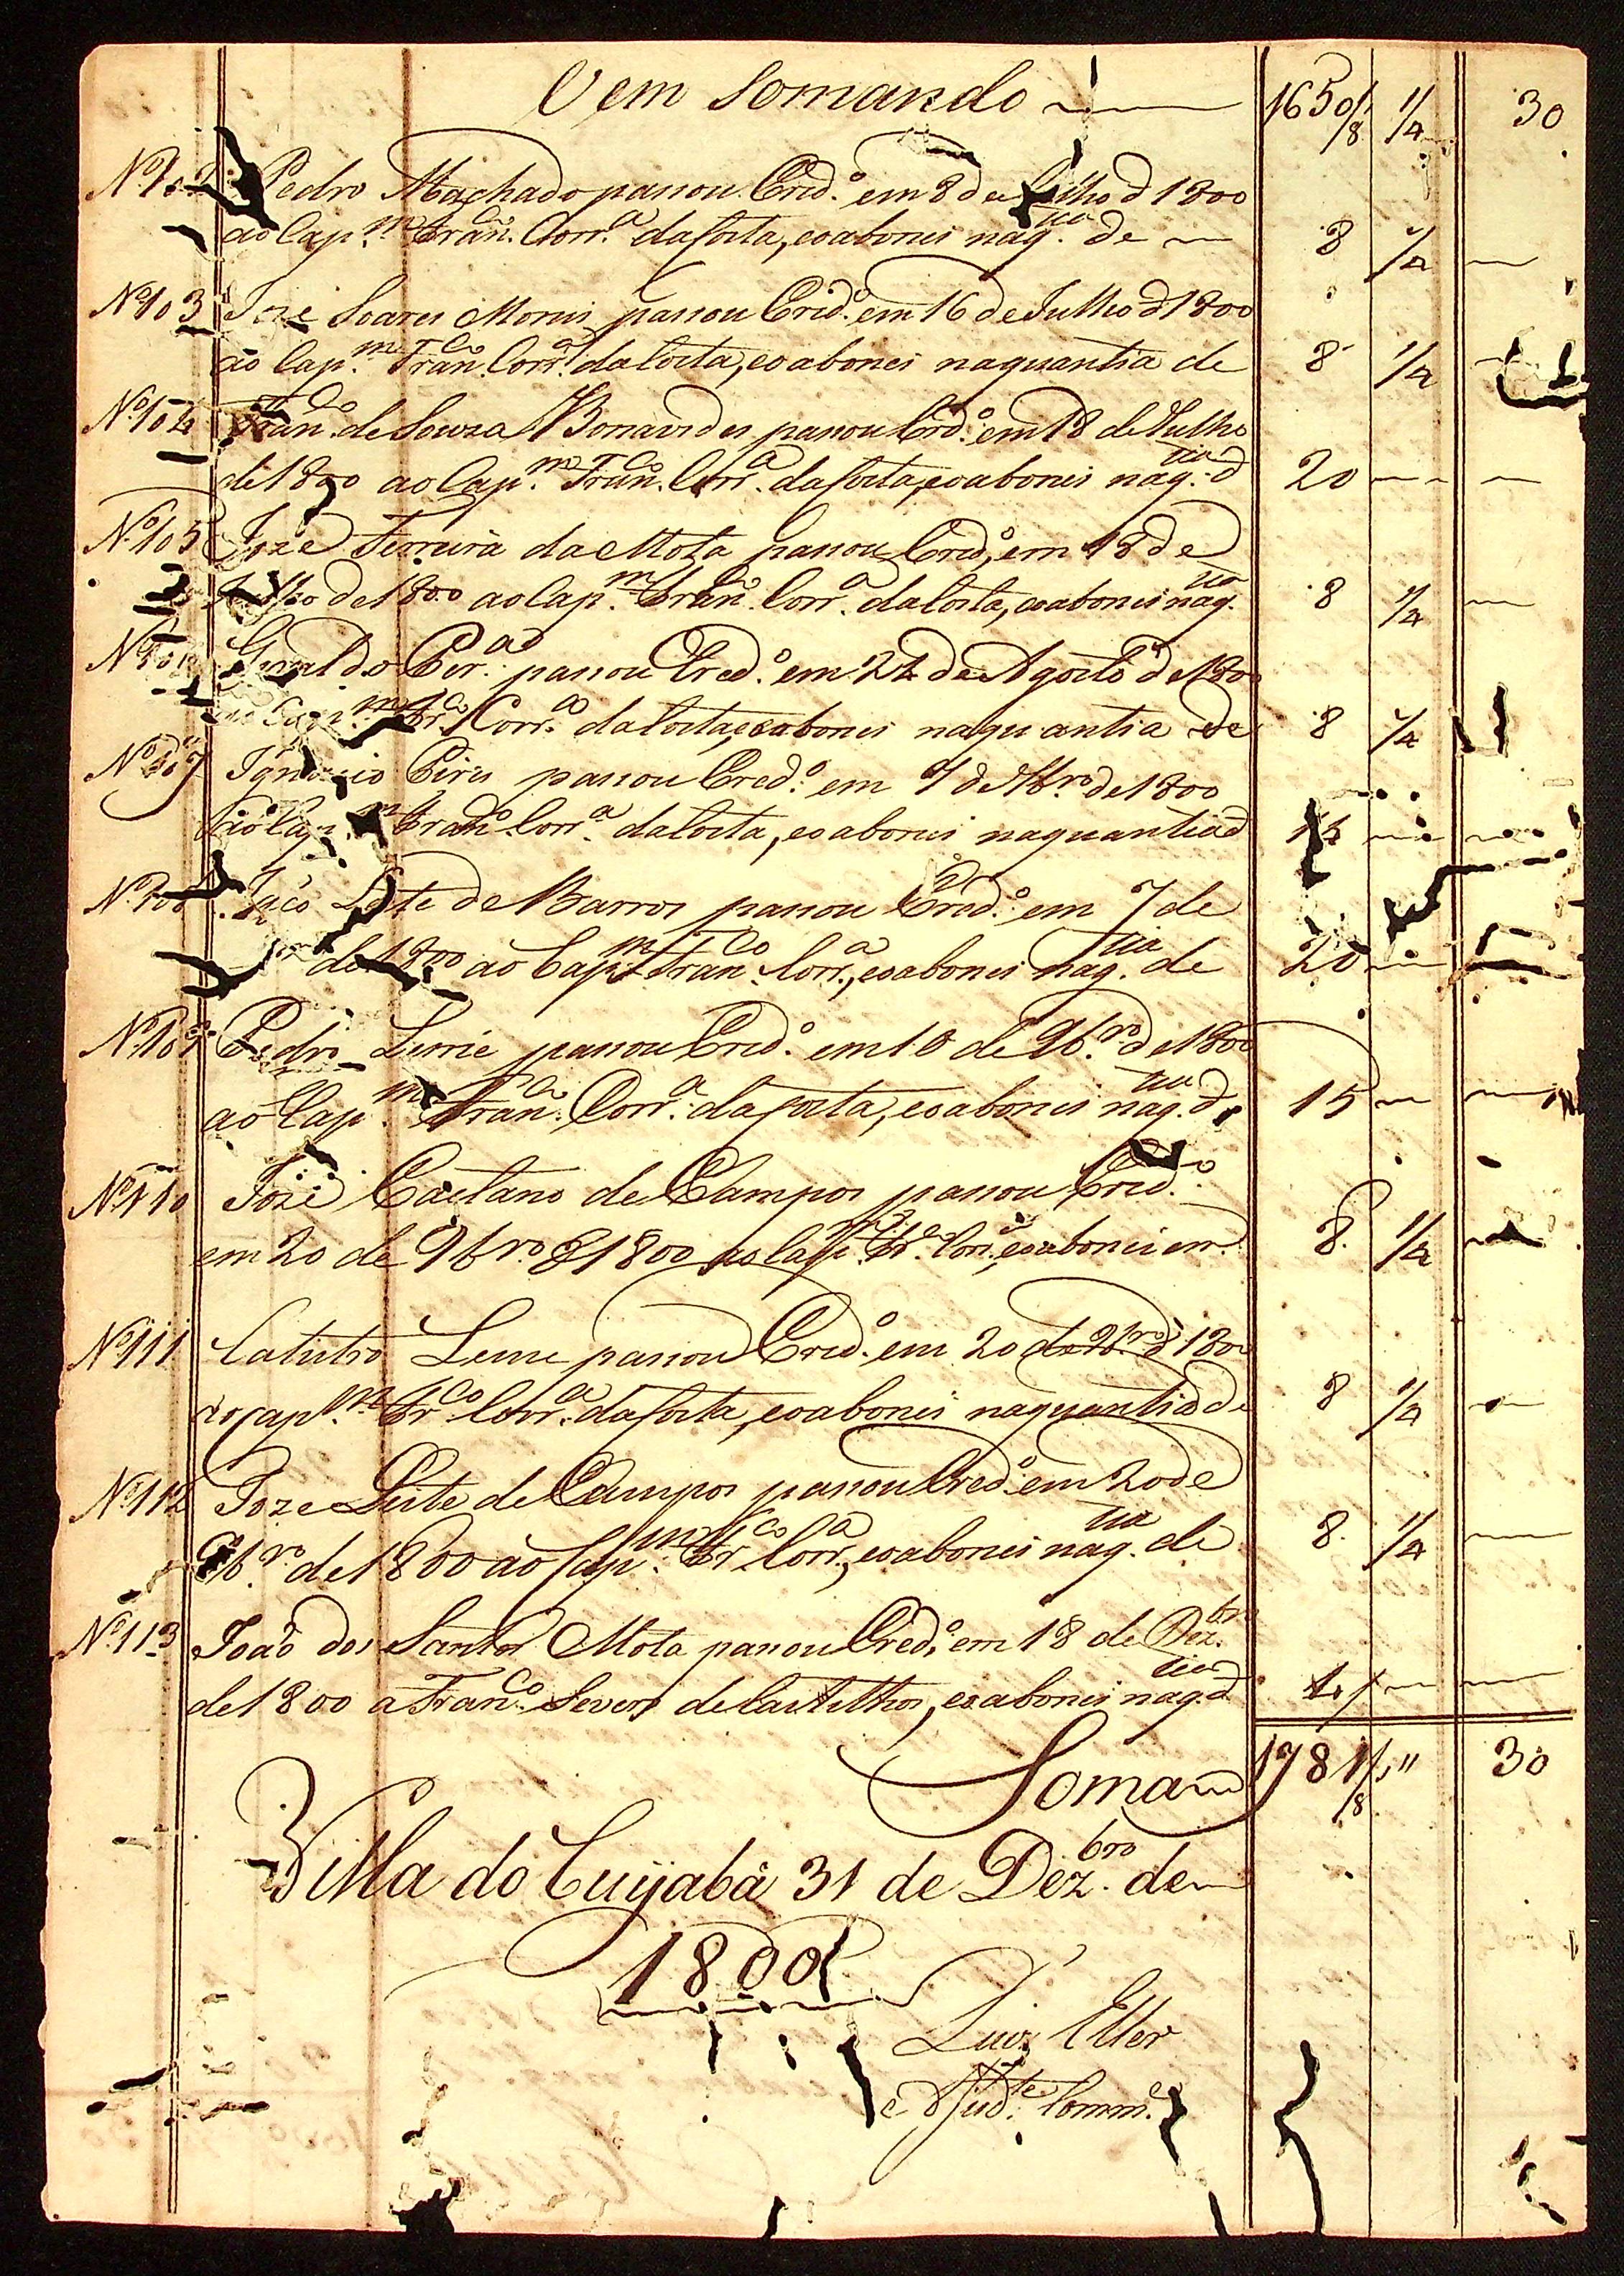 Vem Somando 1650/8 1/4 30
Nº 102 Pedro Machado passou Cred.º em 8 de Julho d 1800
ao Cap.m Fran.co Corr.a da Costa, eo abonei na q.tia de 8 1/4
Nº 103 Joze Soares passou Cred.º em 16 de Julho d 1800
ao Cap.m Fran.co Corr.a da Costa, eo abonei na quantia de 8 1/4
Nº 104 Fran.co de Souza Bonavides passou Cred.º em 18 de Julho
de 1800 ao Cap.m Fran.co Corr.a da Costa, eo abonei na q.tia d 20
Nº 105 Joze Ferreira da Mota passou Cred.º em 18 de
Julho de 1800 ao Cap.m Fran.co Corr.a da Costa, eo abonei na q.tia 8 1/4
Nº Giraldo passou Cred.º em 24 de Agosto de 1800
ao Cap.m Fr.co Corr.a da Costa, eo abonei na quantia de 8 1/4
Nº 107 Ignacio Pires passou Cred.º em 7 de de 1800
ao Cap.m Fran.co Corr.a da Costa, eo abonei na quantia d
Nº Leite de Barros passou Cred.º em 7 de
de 1800 ao Cap.m Fran.co Corr.a, eo abonei na q.tia de 20
Nº 109 Pedro Leme passou Cred.º em 10 de 9br.º de 1800
ao Cap.m Fran.co Corr.a da Costa, eo abonei na q.tia d 15
Nº 110 Joze Caetano de Campos passou Cred.º
em 20 de 9bro. d 1800 ao Cap.m Fr.co Corr.a, eo abonei em 8 1/4
Nº 111 Leme passou Cred.º em 20 de 9br.º d 1800
ao Cap.m Fr.co Corr.a da Costa, eo abonei na quantia de 8 1/4
Nº 112 Joze Leite de Campos passou Cred.º em 20 de
9br.º de 1800 ao Cap.m Fr.co Corr.a, eo abonei na q.tia de 8 1/4
Nº 113 João dos Santos Mota passou Cred.º em 18 de Dez.bro
de 1800 a Fran.co Severo de Castilhos, eo abonei na q.tia d
Soma 1781/8 " 30
Villa do Cuyabá 31 de Dez.bro de
1800
Luis Eller
Ajud.te Comm.e